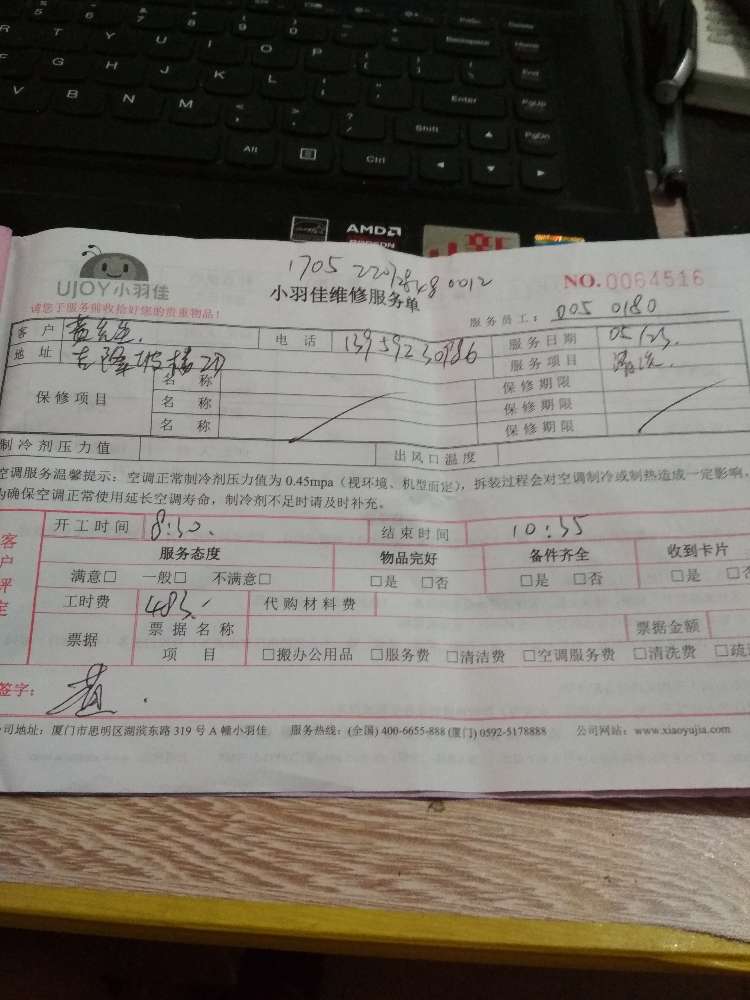 5 6 7 8 9 0 PrtSc Delete
R T Y U I O P Backspace Home
F G H J K L End
V B N M Enter PgUp
Shift PgDn
Alt Ctrl
AMD
1705 22012848 0012
UJOY小羽佳
小羽佳维修服务单
NO.0064516
请您于服务前收拾好您的贵重物品！
服务员工： 005 0180
客户 黄先生 电话 13959230986 服务日期 05/23.
地址 服务项目 清洗.
保修项目 名称 保修期限
名称 保修期限
名称 保修期限
制冷剂压力值 出风口温度
空调服务温馨提示：空调正常制冷剂压力值为 0.45mpa（视环境、机型而定），拆装过程会对空调制冷或制热造成一定影响，
为确保空调正常使用延长空调寿命，制冷剂不足时请及时补充。
客户评定
开工时间 8:30. 结束时间 10:35
服务态度 物品完好 备件齐全 收到卡片
满意□ 一般□ 不满意□ □是 □否 □是 □否 □是 □否
工时费 483. 代购材料费
票据 票据名称 票据金额
项目 □搬办公用品 □服务费 □清洁费 □空调服务费 □清洗费 □疏
签字： 黄.
公司地址：厦门市思明区湖滨东路 319 号 A 幢小羽佳 服务热线：(全国) 400-6655-888 (厦门) 0592-5178888 公司网站：www.xiaoyujia.com